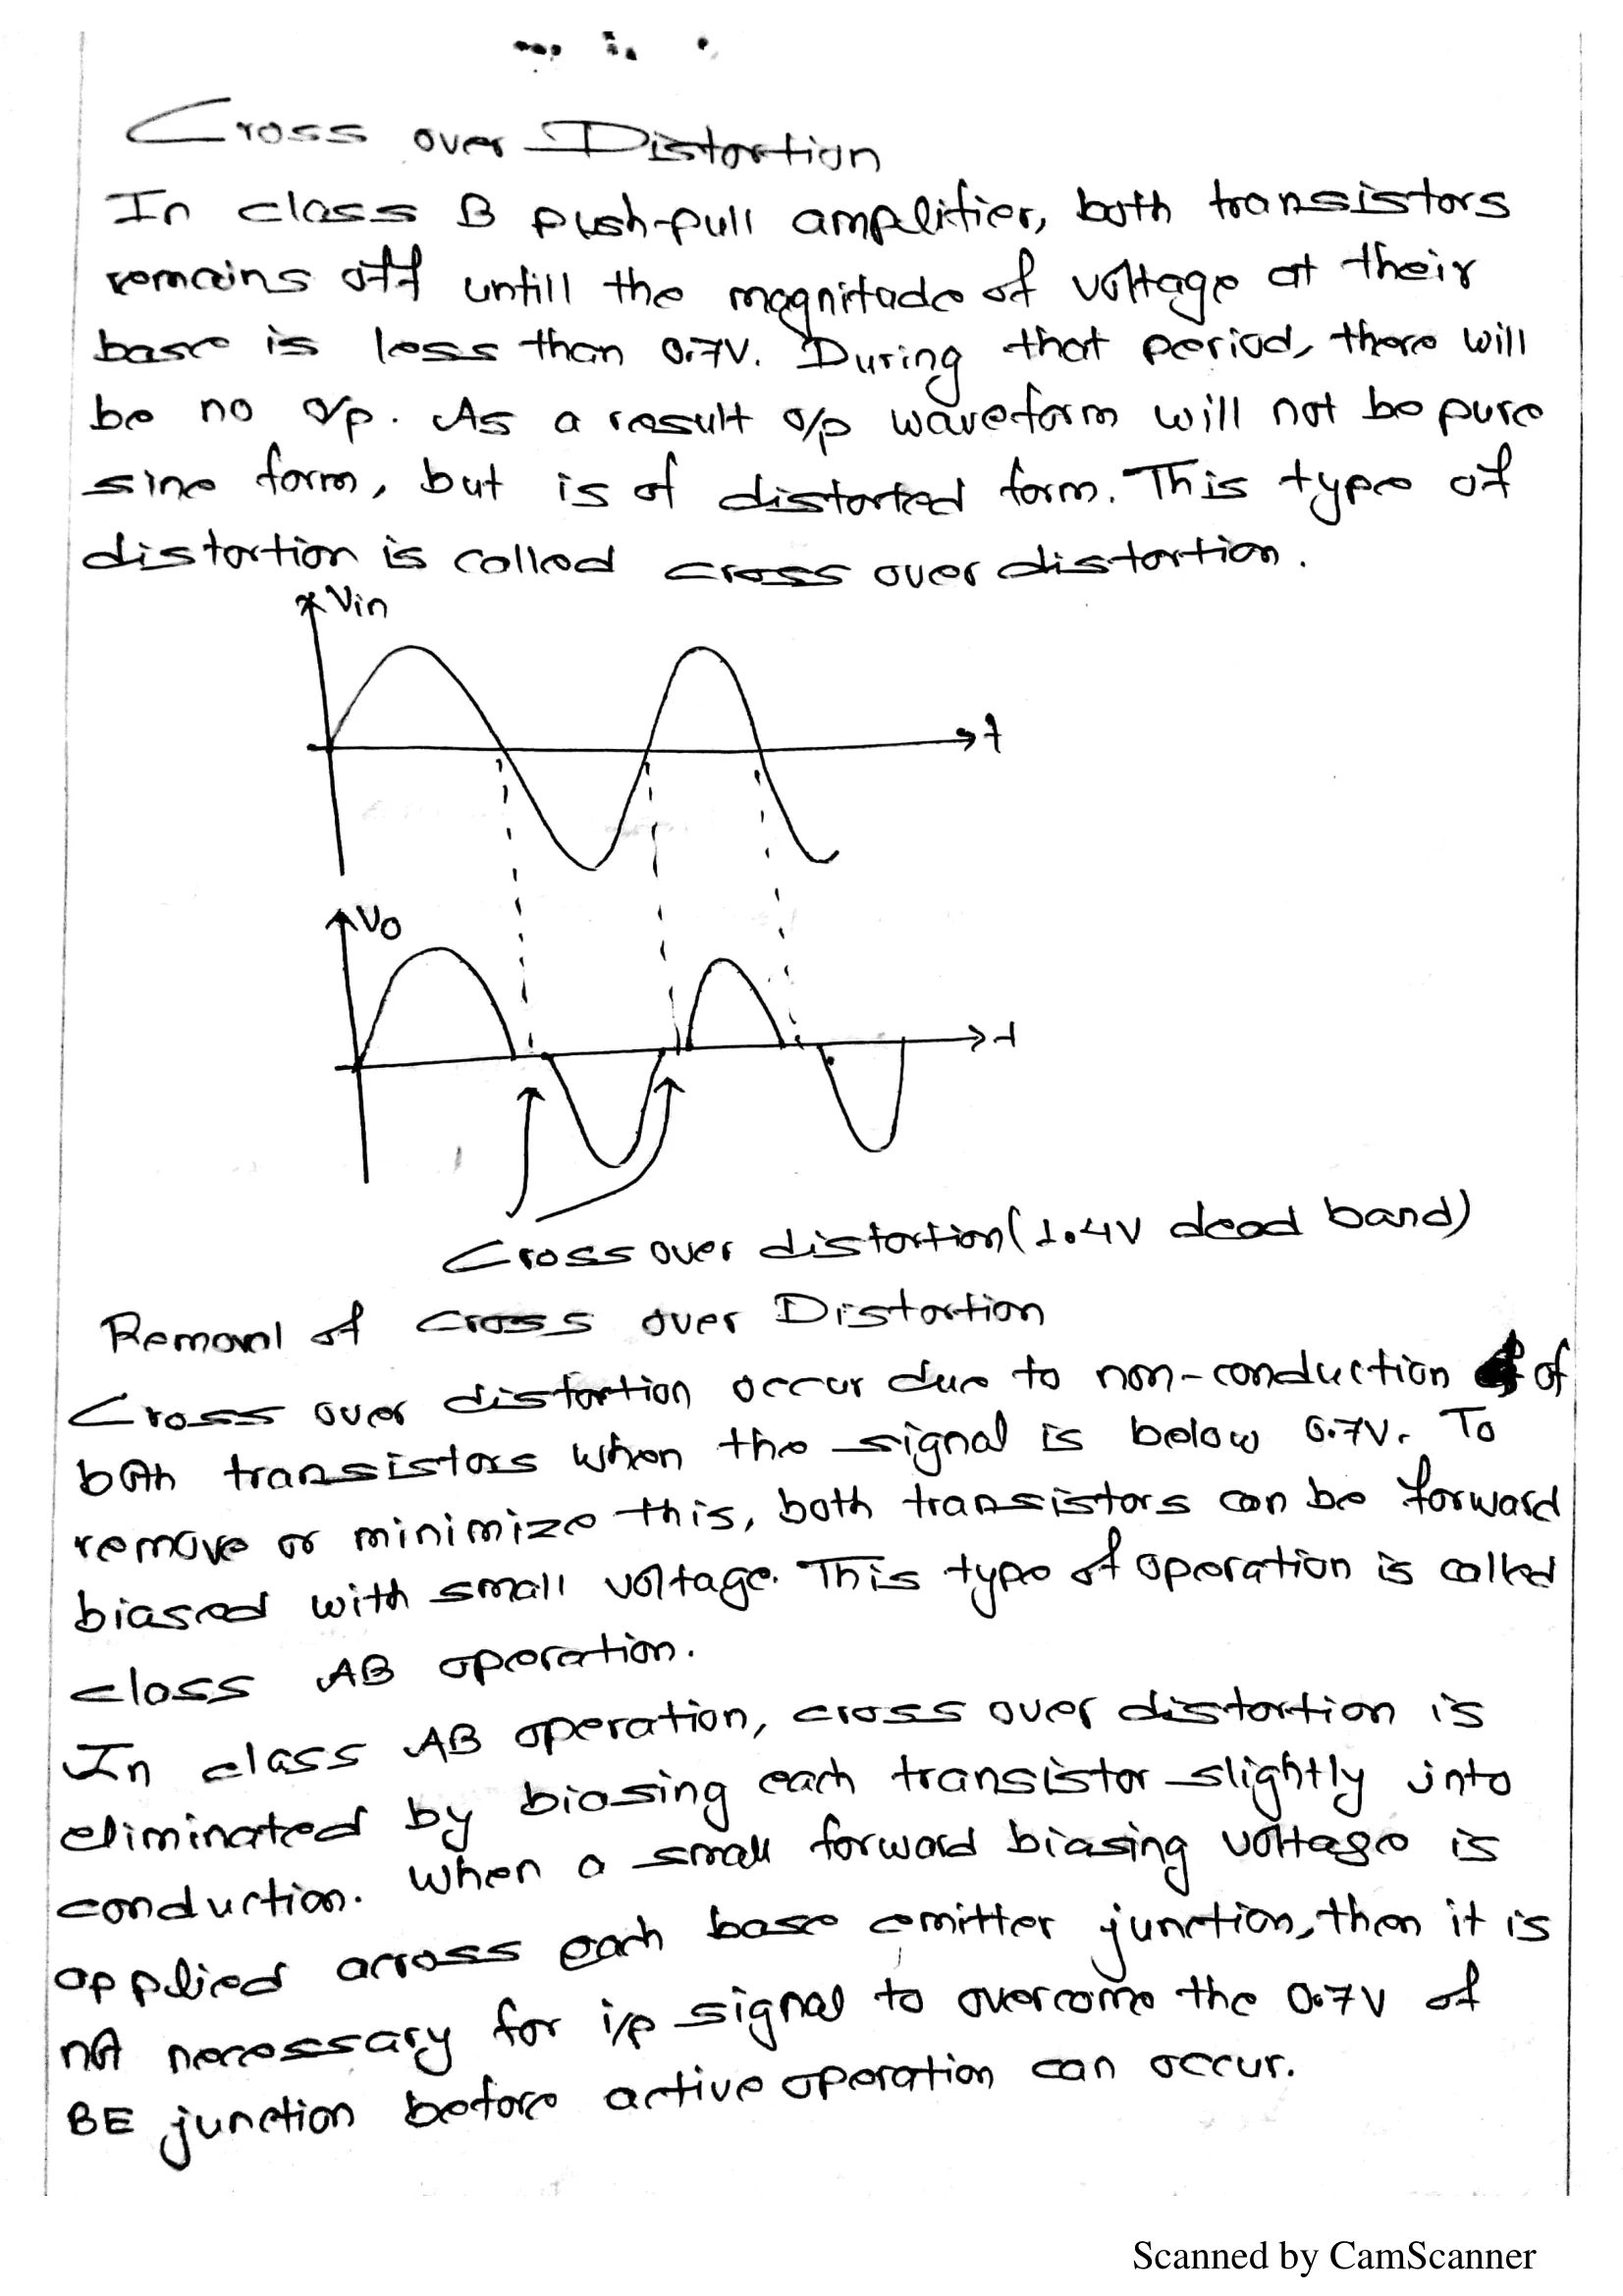 Cross over Distortion
In class B push-pull amplifier, both transistors
remains off untill the magnitude of voltage at their
base is less than 0.7V. During that period, there will
be no o/p. As a result o/p waveform will not be pure
sine form, but is of distorted form. This type of
distortion is called cross over distortion.
Vin
t
Vo
t
Cross over distortion (1.4V dead band)
Removal of cross over Distortion
Cross over distortion occur due to non-conduction of
both transistors when the signal is below 0.7V. To
remove or minimize this, both transistors can be forward
biased with small voltage. This type of operation is called
class AB operation.
In class AB operation, cross over distortion is
eliminated by biasing each transistor slightly into
conduction. When a small forward biasing voltage is
applied across each base emitter junction, then it is
not necessary for i/p signal to overcome the 0.7V of
BE junction before active operation can occur.
Scanned by CamScanner